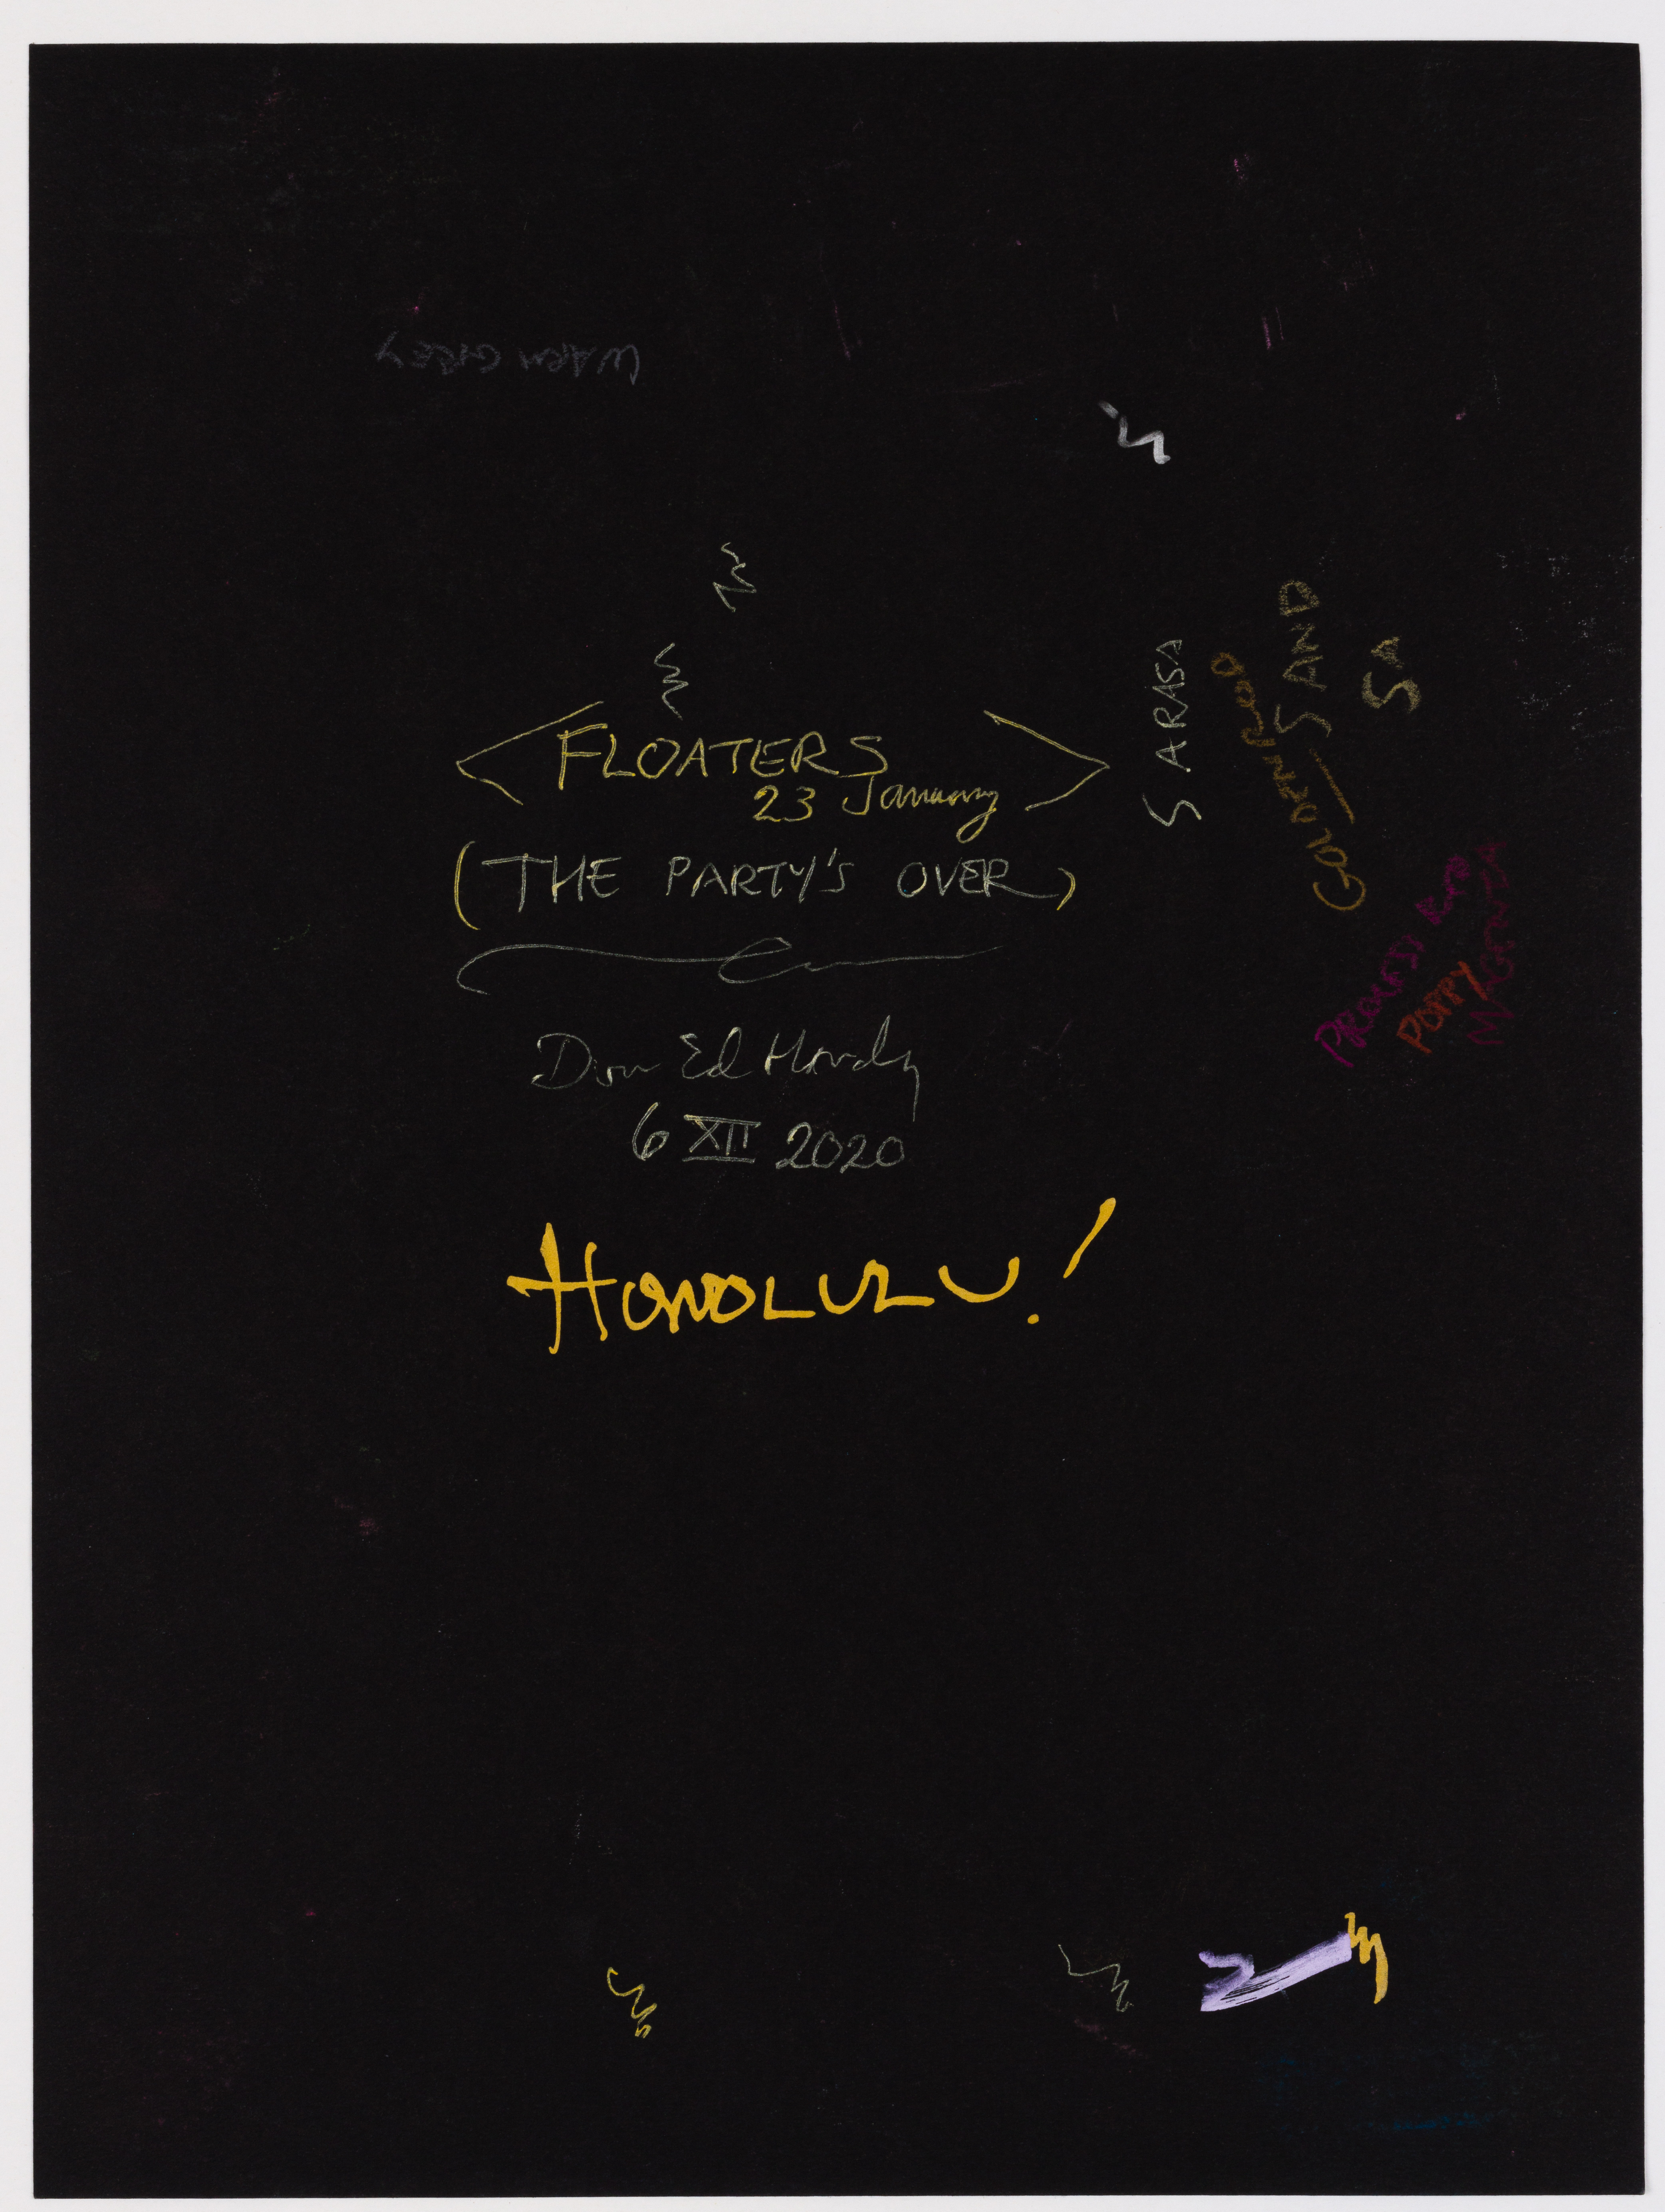 WARM GREY
FLOATERS
23 January
(THE PARTY'S OVER)
Don Ed Hardy
6 XII 2020
HONOLULU!
SARASA
GOLDEN ROD
SAND
SA
PROCESS RED
POPPY
MAGENTA